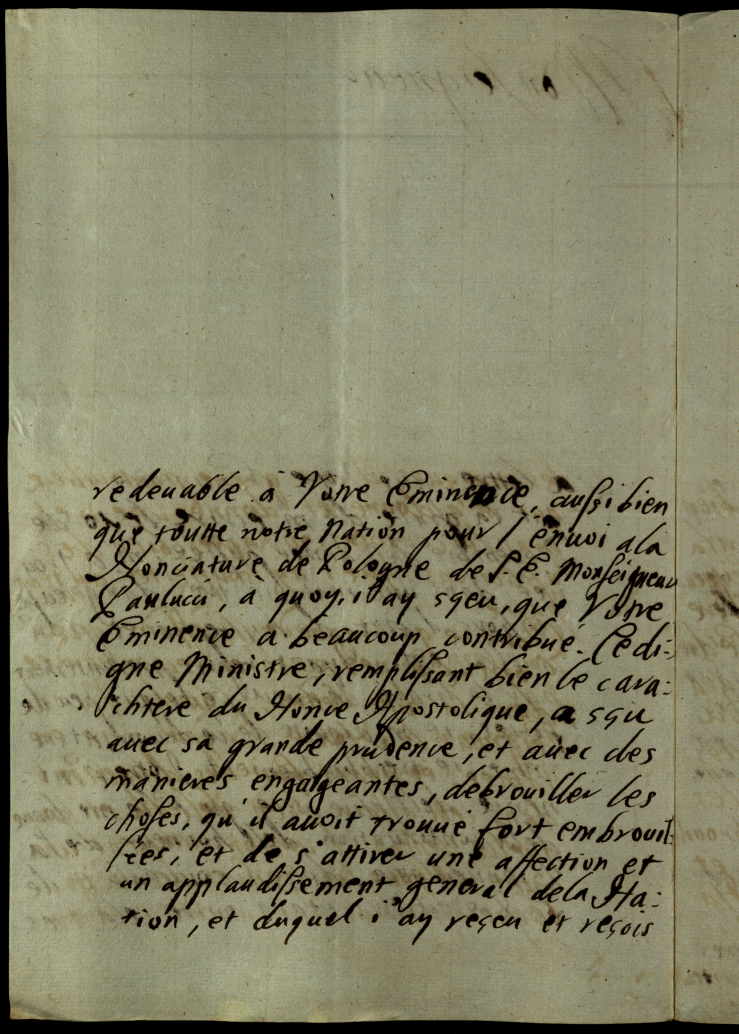 redeuable à Votre Eminence, aussi bien
que toutte notre Nation pour l'enuoi a la
Nonciature de Pologne de S. E. Monseigneur
Paulucci, à quoy, i'ay sçeu, que Votre
Eminence a beaucoup contribué. Ce di-
gne Ministre, remplissant bien le cara-
chtere du Nonce Apostolique, a sçu
auec sa grande prudence, et auec des
manieres engageantes, debrouiller les
choses, qu'il auoit trouué fort embrouil
lées, et de s'attirer une affection et
un applaudissement general de la Na:
tion, et duquel i'ay reçeu et reçois